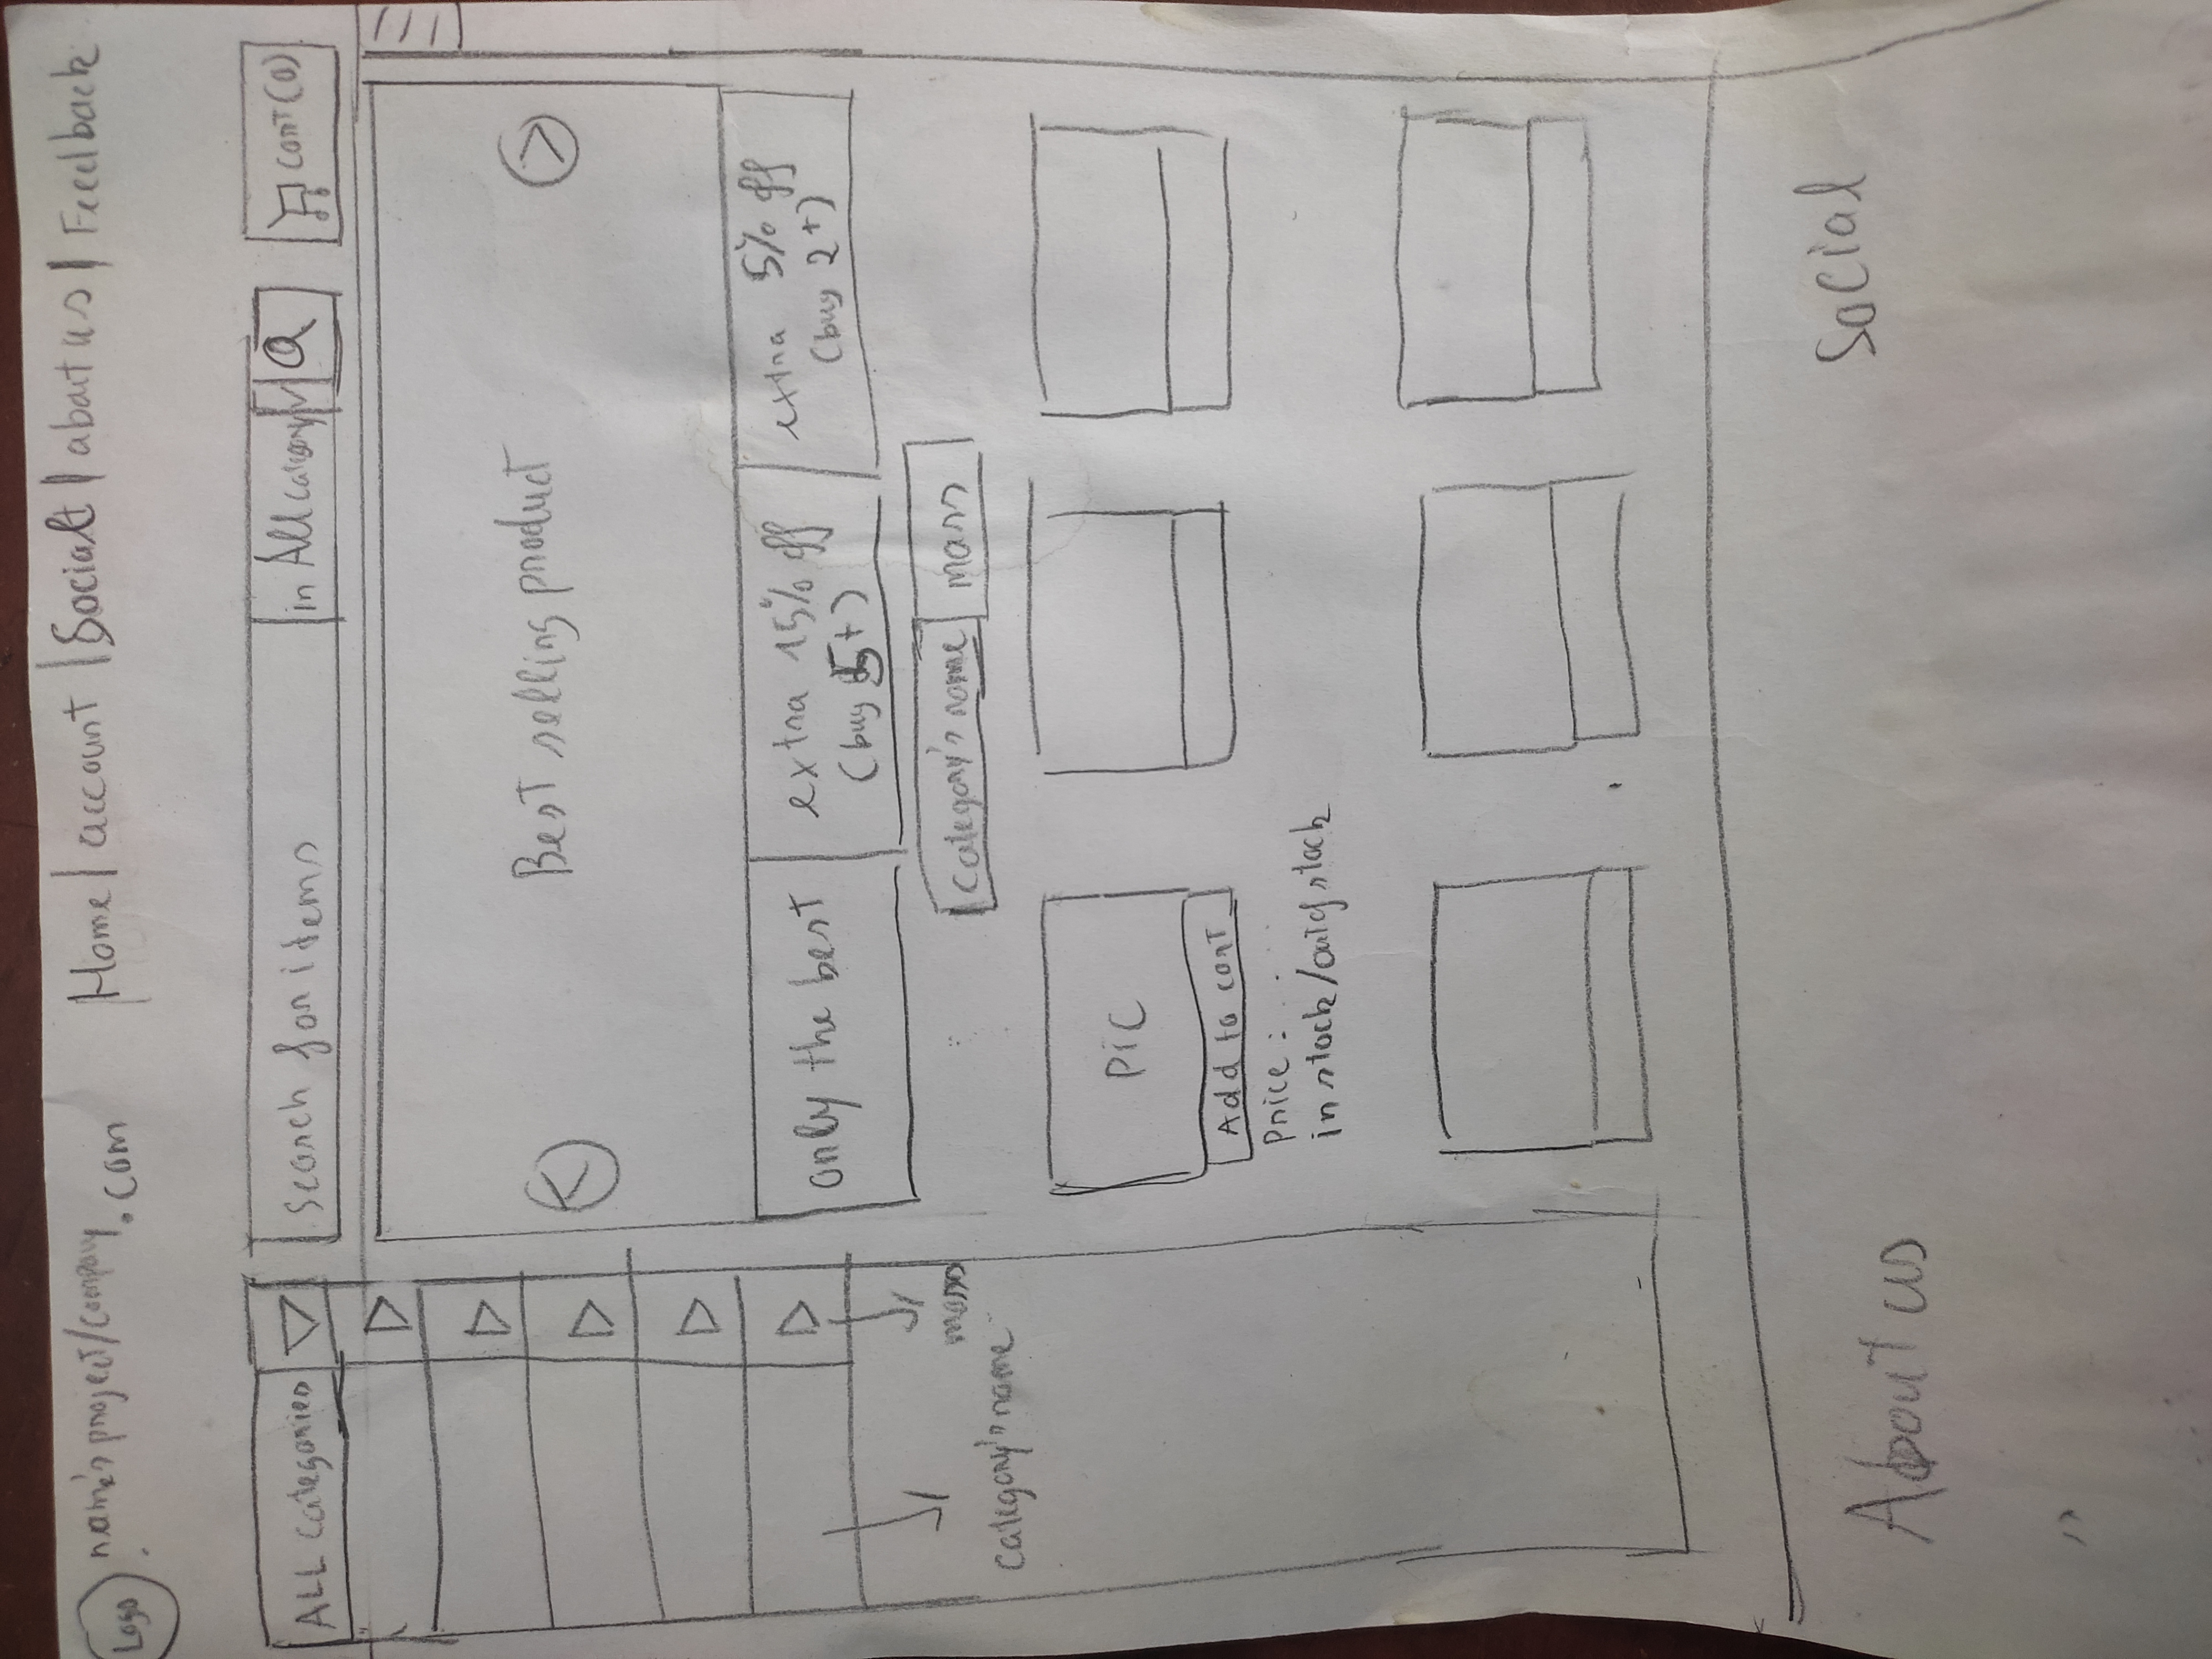 Logo
name's project/company
.com
Home | account | Social | about us | Feedback
ALL categories
Search for items
in All category
cart(0)
Best selling product
only the best
extra 15% off
(buy 5+)
extra 5% off
(buy 2+)
Category's name
mass
mass
Category's name
Pic
Add to cart
Price: ....
in stock/out of stock
About us
Social